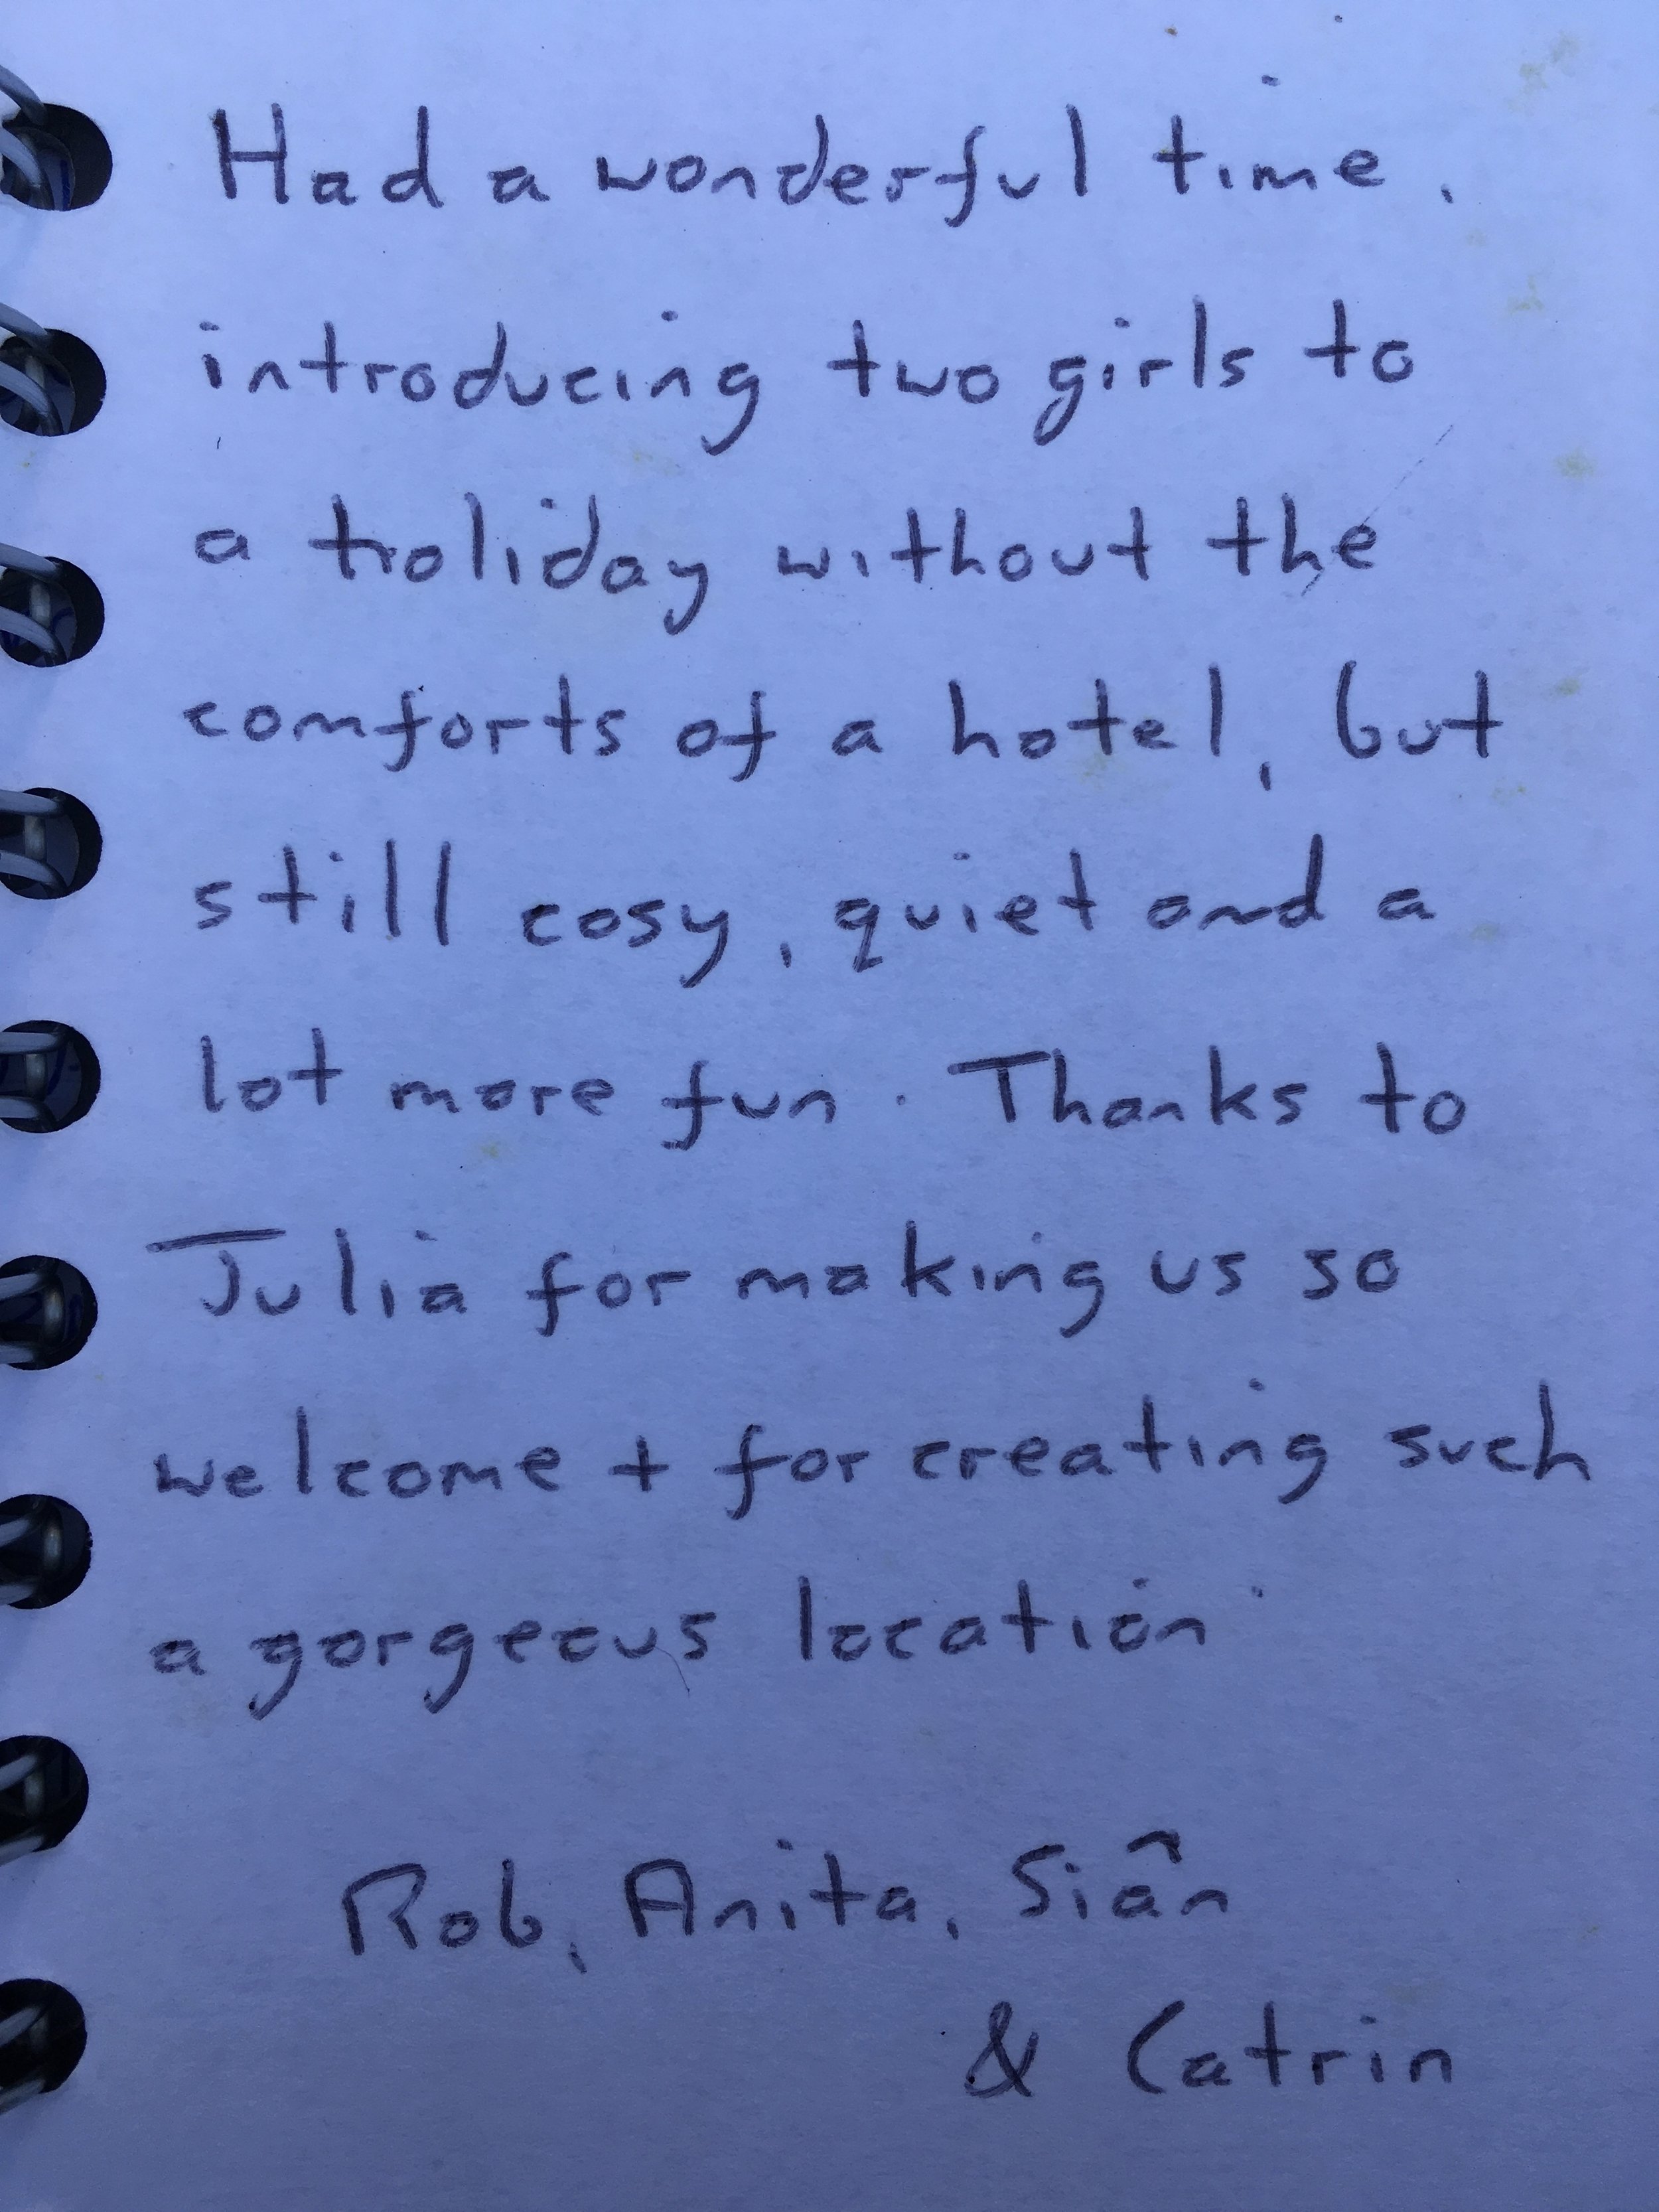 Had a wonderful time,
introducing two girls to
a holiday without the
comforts of a hotel, but
still cosy, quiet and a
lot more fun. Thanks to
Julia for making us so
welcome + for creating such
a gorgeous location.
Rob, Anita, Siân
& Catrin